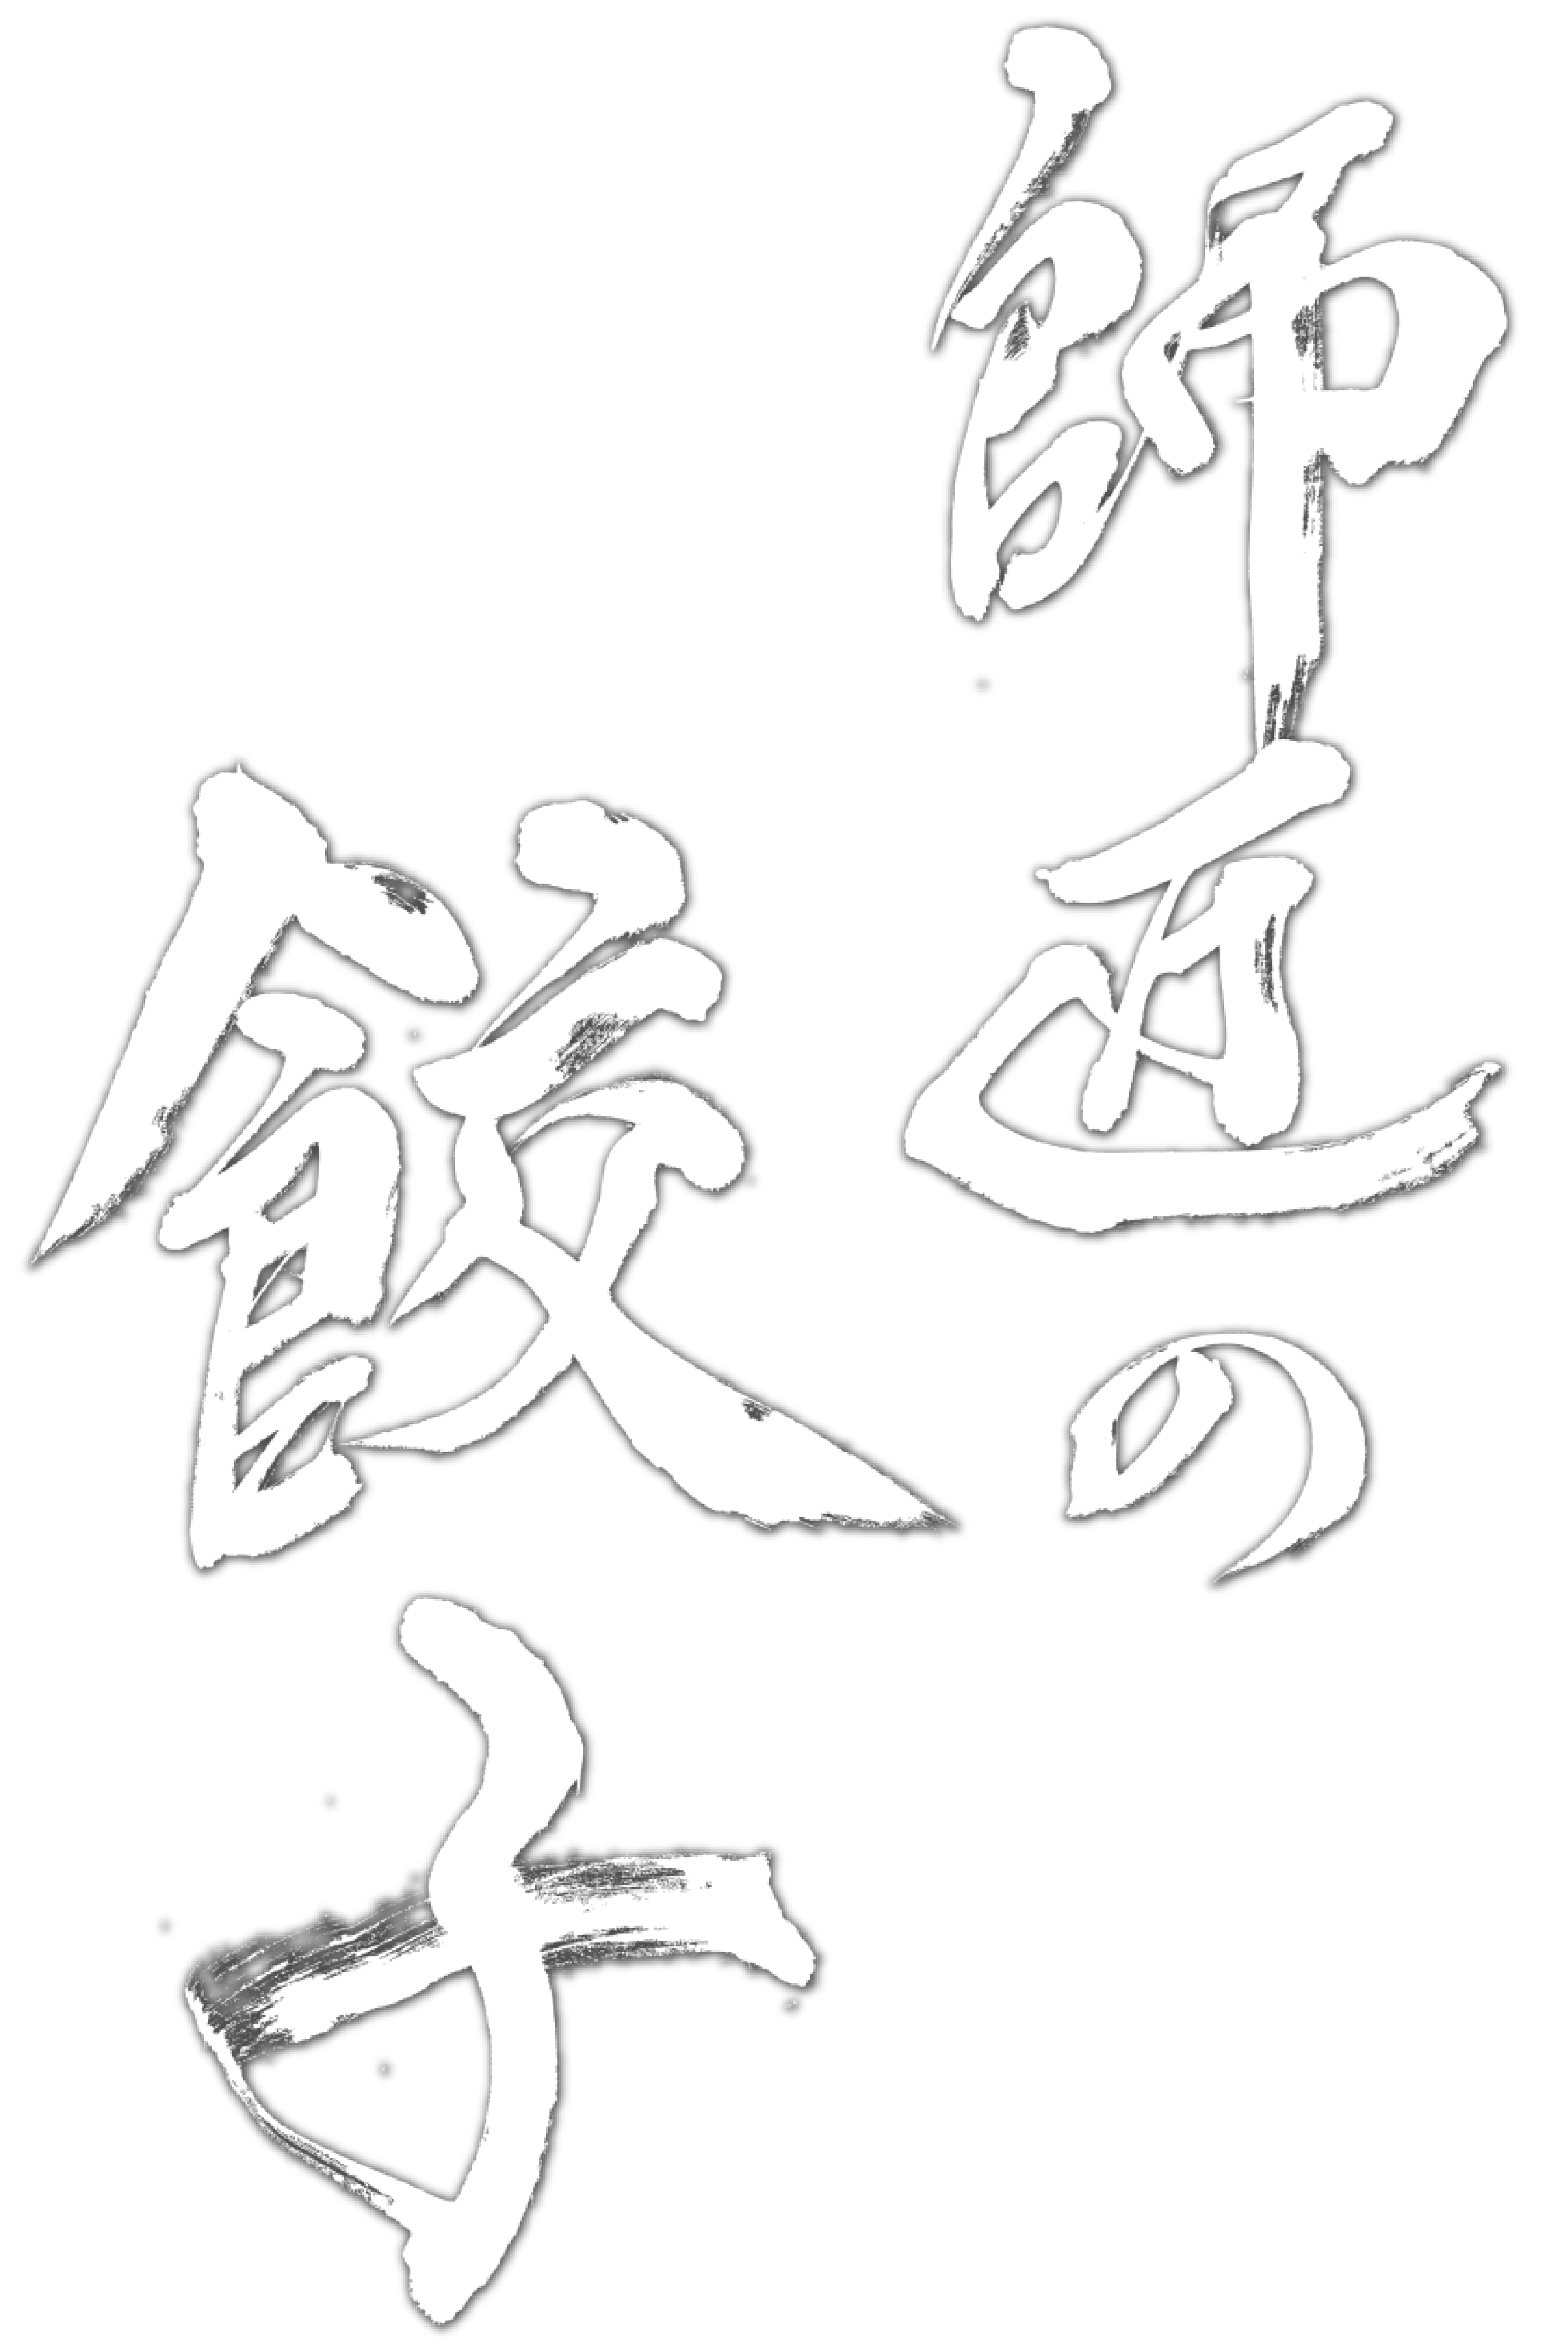 師匠の
餃子